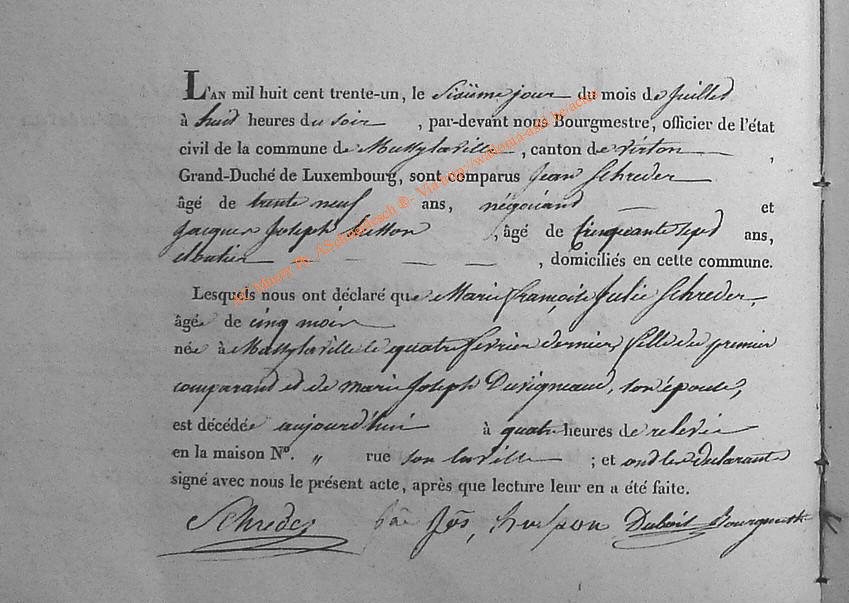 L'AN mil huit cent trente-un, le Sixiême jour du mois de Juillet
à huit heures du soir, par-devant nous Bourgmestre, officier de l'état
civil de la commune de Mussylaville, canton de virton,
Grand-Duché de Luxembourg, sont comparus Jean Schreder
âgé de trente neuf ans, négociant et
Jacques Joseph husson, âgé de Cinquante sept ans,
, domiciliés en cette commune.
Lesquels nous ont déclaré que Marie françoise Julie Schreder,
âgée de cinq mois
née à Mussylaville le quatre fevrier dernier, fille du premier
comparant et de marie Joseph Duvigneaud, son épouse,
est décédée aujourd'hui à quatre heures de relevée
en la maison N°. „ rue laville; et ont les declarants
signé avec nous le présent acte, après que lecture leur en a été faite.
Schreder Jqs, husson Duboit Bourgmestre